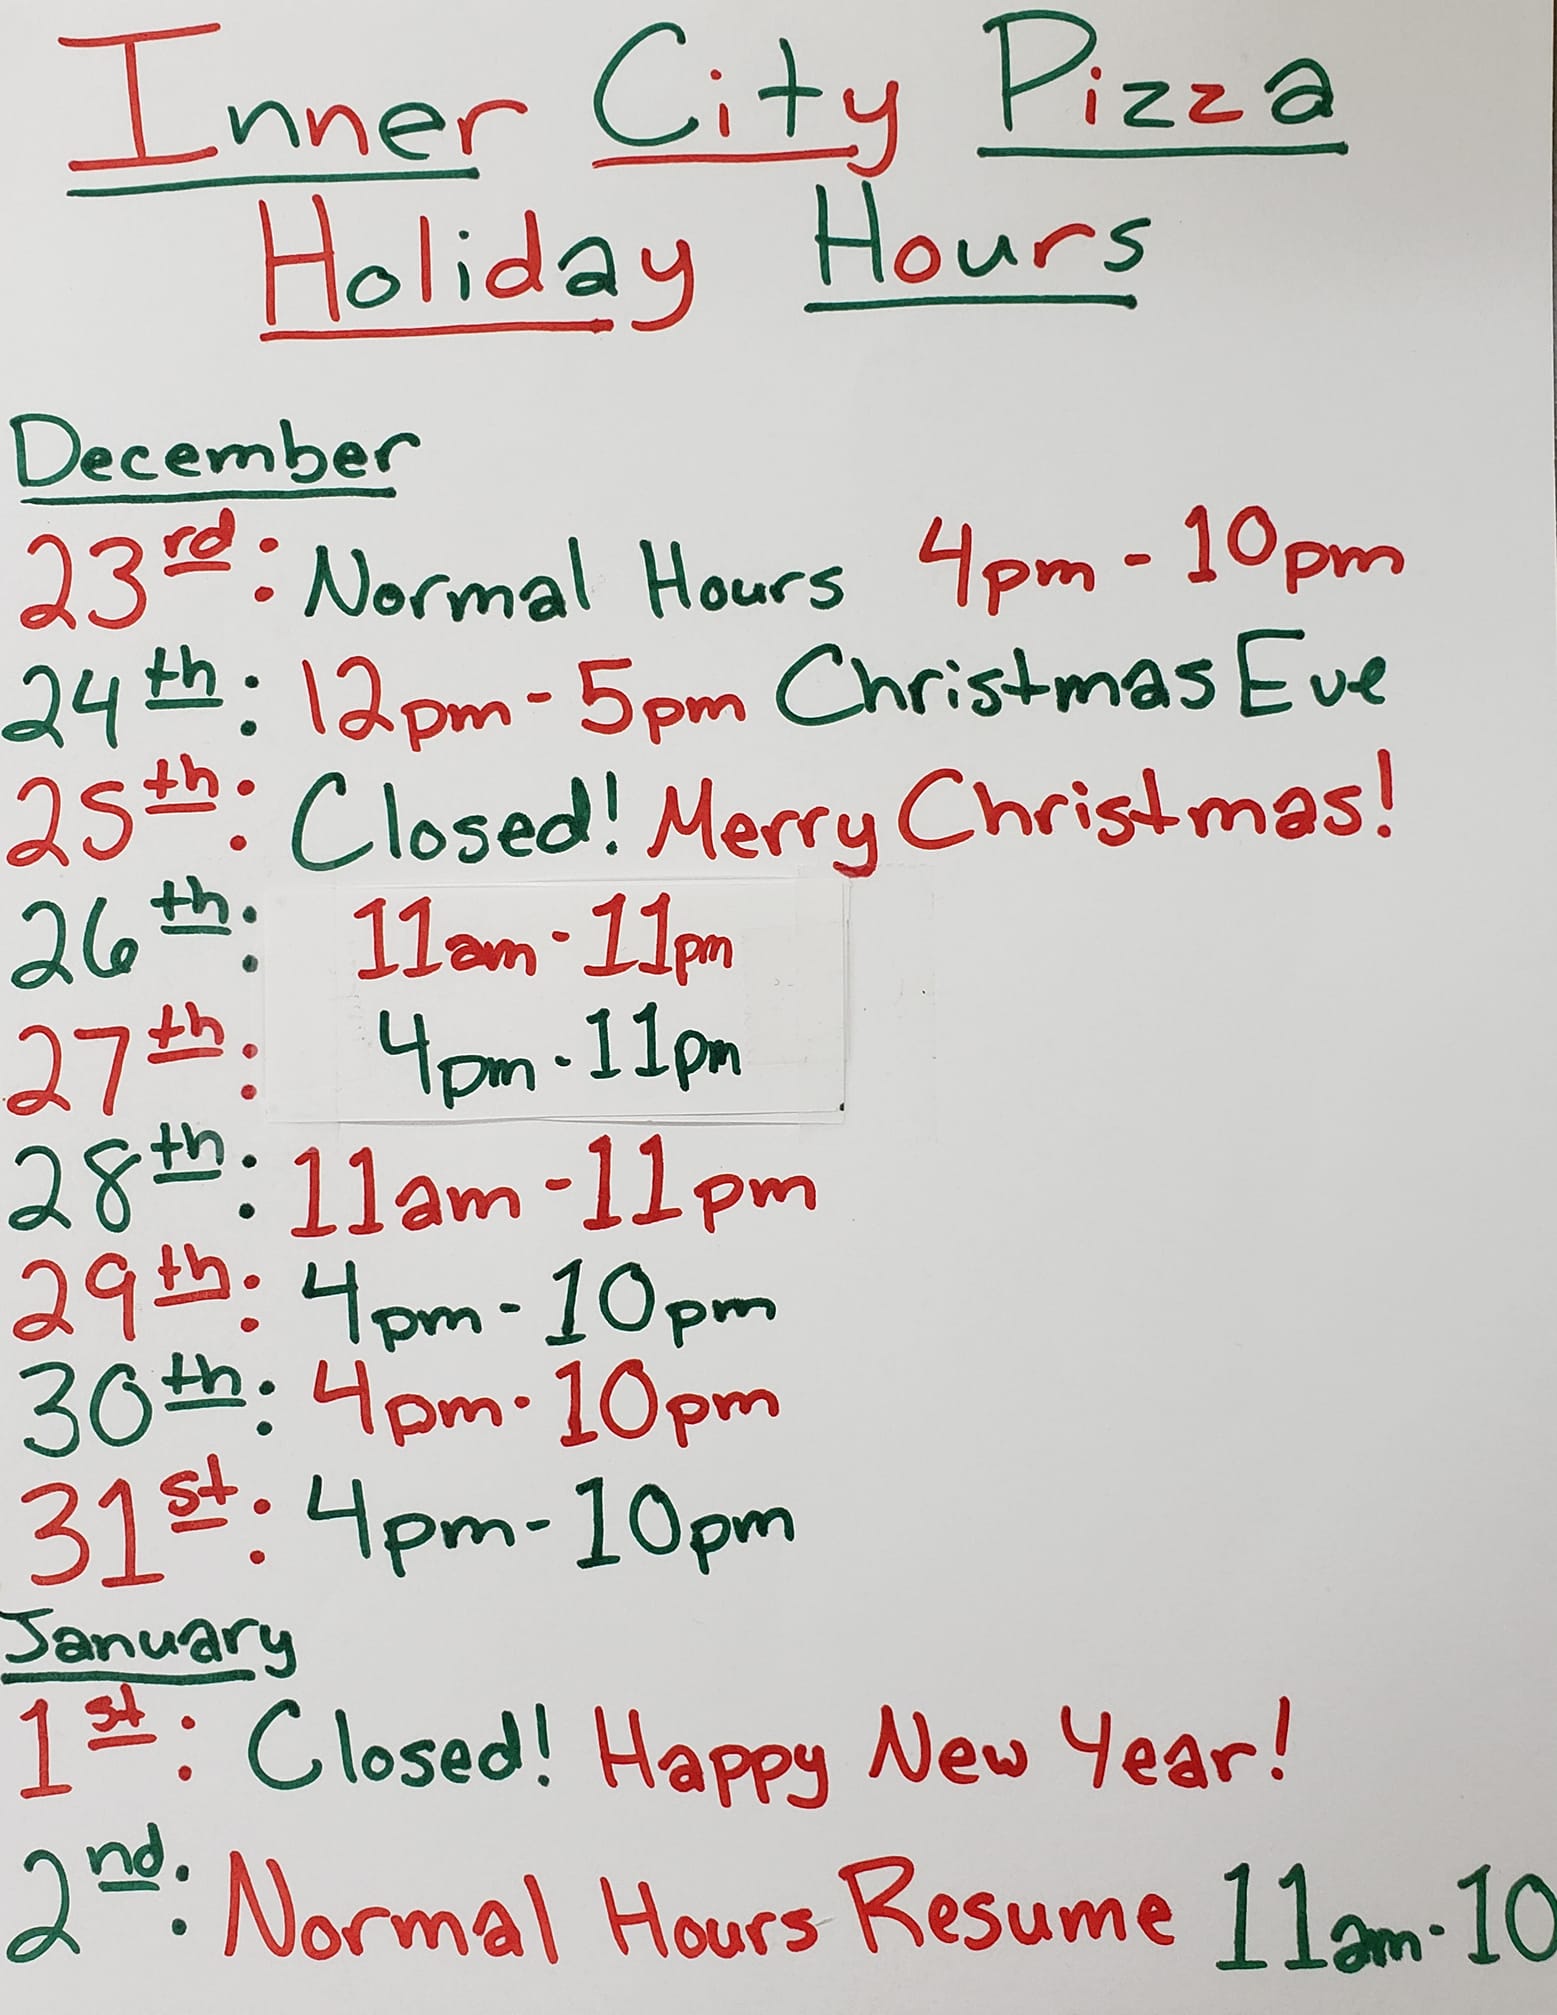 Inner City Pizza
Holiday Hours
December
23rd: Normal Hours 4pm - 10pm
24th: 12pm - 5pm Christmas Eve
25th: Closed! Merry Christmas!
26th: 11am - 11pm
27th: 4pm - 11pm
28th: 11am - 11pm
29th: 4pm - 10pm
30th: 4pm - 10pm
31st: 4pm - 10pm
January
1st: Closed! Happy New Year!
2nd: Normal Hours Resume 11am - 10